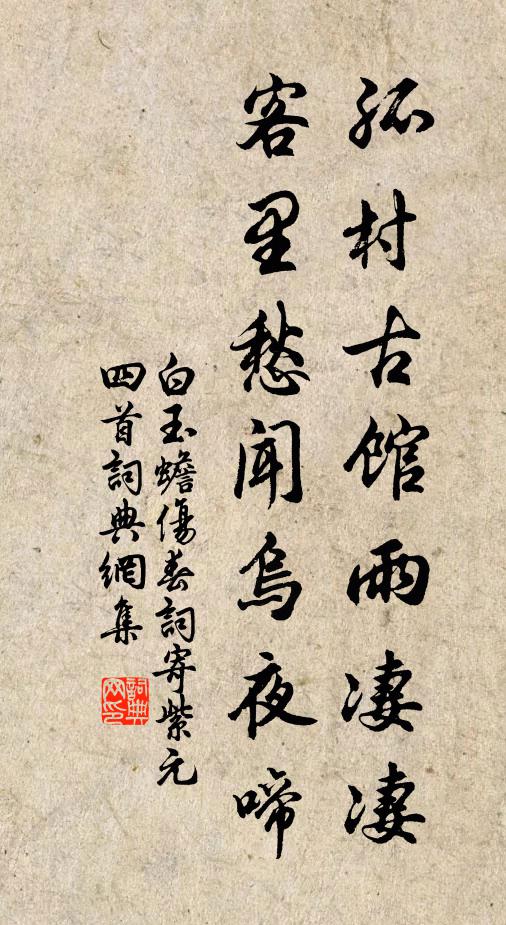 孤村古館雨凄凄
客里愁闻烏夜啼
白玉蟾傷春詞寄紫元
四首詞典網集
詞典网印